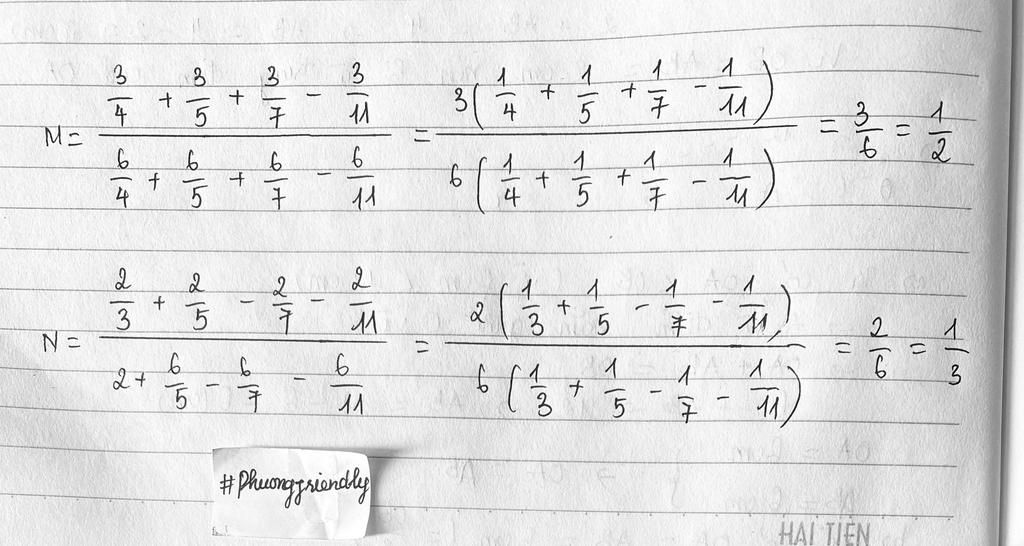 M = (3/4 + 3/5 + 3/7 - 3/11)/(6/4 + 6/5 + 6/7 - 6/11) = 3(1/4 + 1/5 + 1/7 - 1/11)/6(1/4 + 1/5 + 1/7 - 1/11) = 3/6 = 1/2
N = (2/3 + 2/5 - 2/7 - 2/11)/(2 + 6/5 - 6/7 - 6/11) = 2(1/3 + 1/5 - 1/7 - 1/11)/6(1/3 + 1/5 - 1/7 - 1/11) = 2/6 = 1/3
#Phuongfriendly
HẢI TIẾN